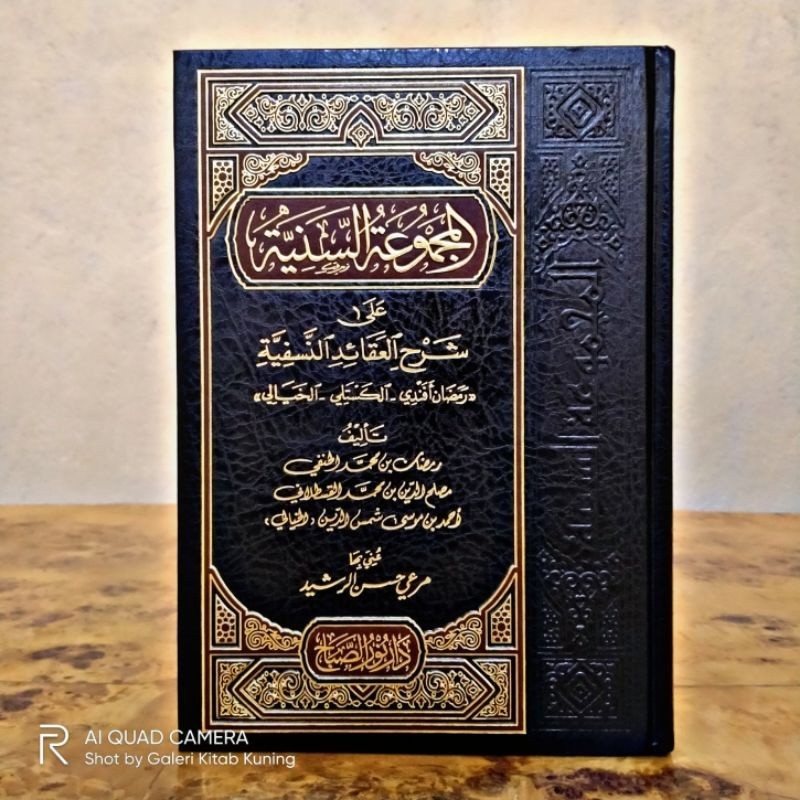 المجموعة السنية
على
شَرْح العَقَائِدِ النَّسَفِيَّةِ
«رَمَضَان أفَنْدِي - الكَسْتَلِي - الخَيَالِي»
تَأليفُ
رمضان بن محمد الحنفي
مصلح الدين بن محمد القسطلاني
أحمد بن موسى شمس الدين «الخيالي»
عُنِيَ بِهَا
مرعي حسن الرشيد
دَارُ نُورِ الصَّبَاحِ
المجموعة السنية
AI QUAD CAMERA
Shot by Galeri Kitab Kuning